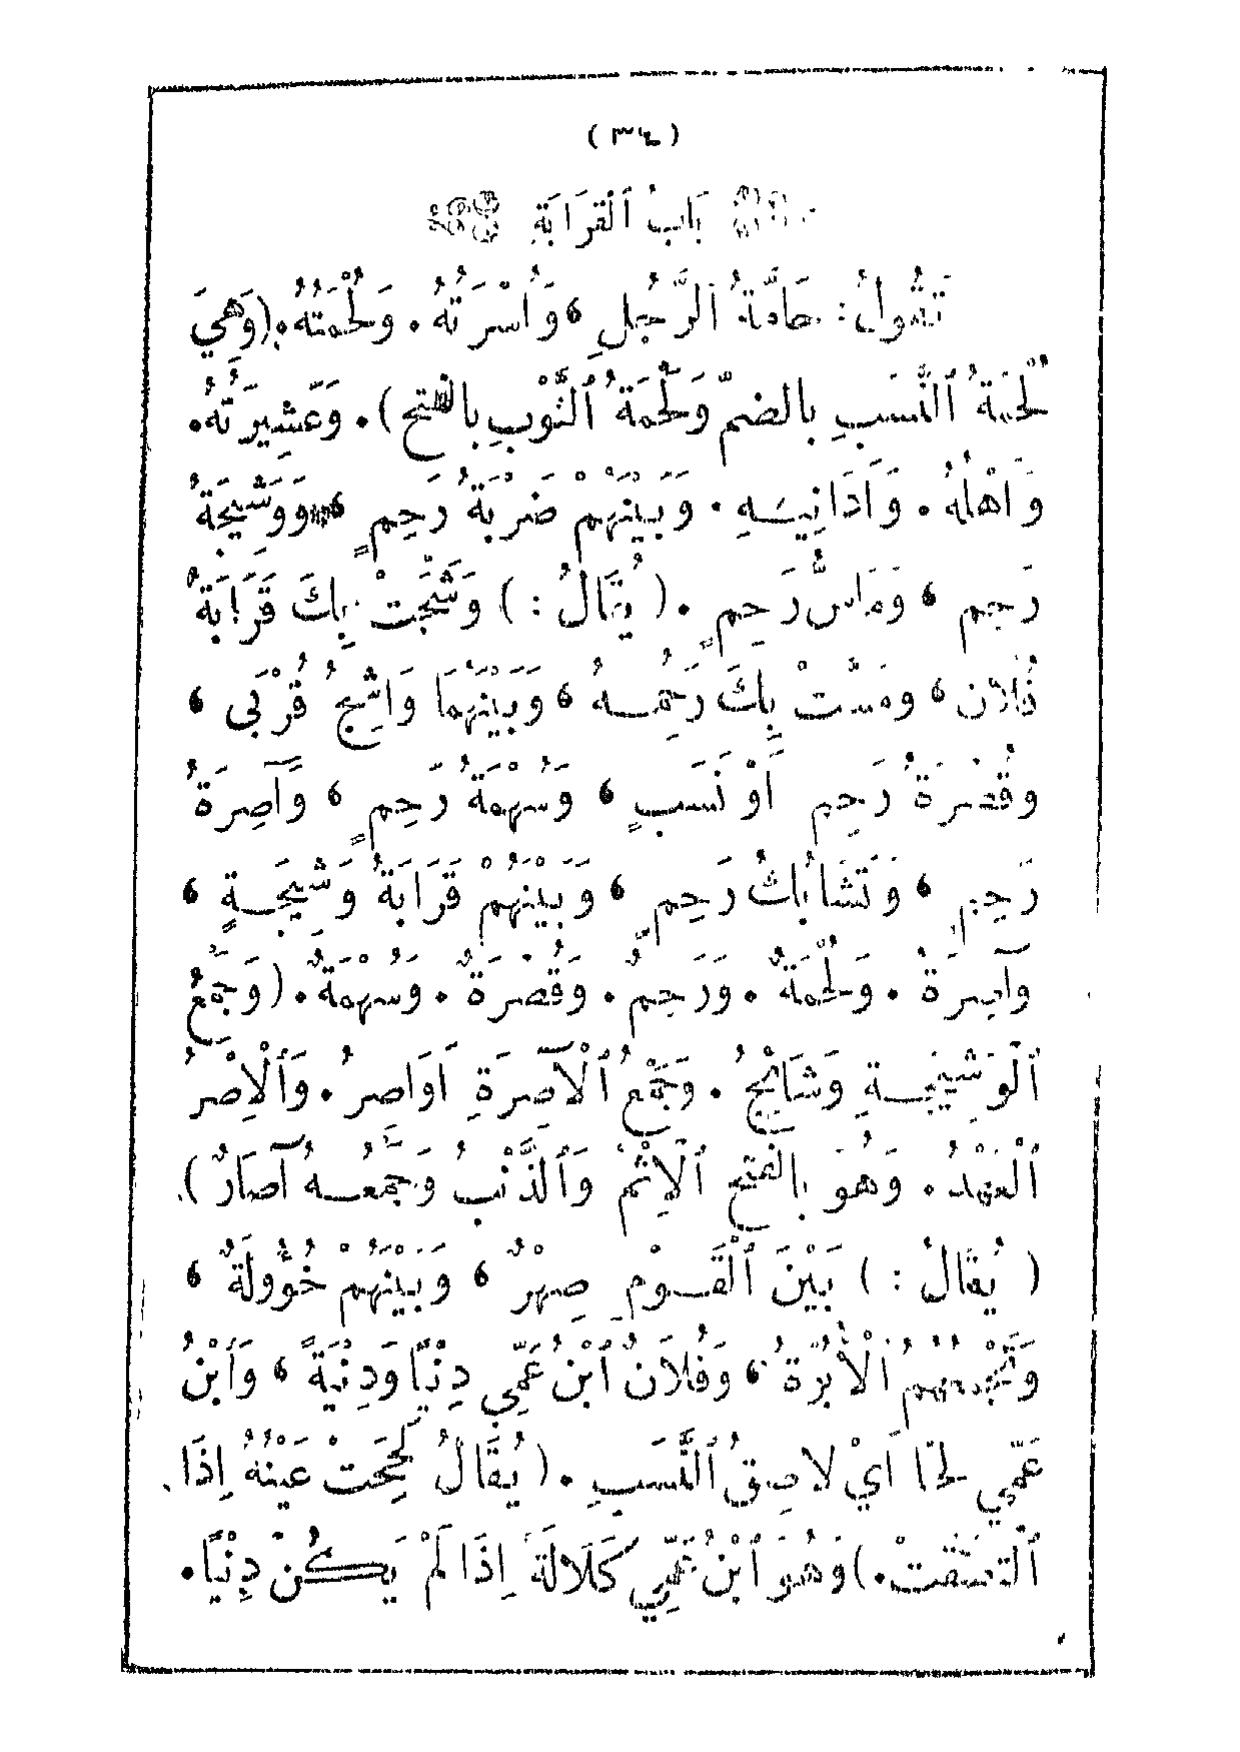 (٣٤)
بَابُ ٱلْقَرَابَةِ
تَقُولُ: حَامَّةُ ٱلرَّجُلِ، وَأُسْرَتُهُ. وَلُحْمَتُهُ. (وَهِيَ
لُحْمَةُ ٱلنَّسَبِ بِالضمِّ وَلَحْمَةُ ٱلثَّوْبِ بِالْفتح). وَعَشِيرَتُهُ.
وَأَهْلُهُ. وَأَدَانِيـهِ. وَبَيْنَهُمْ ضَرْبَةُ رَحِمٍ، وَوَشِيجَةُ
رَحِمٍ، وَمَاسُّ رَحِمٍ. (يُقَالُ:) وَشَجَتْ بِكَ قَرَابَةُ
فُلَان، ومَسَّتْ بِكَ رَحِمُـهُ، وَبَيْنَهُمَا وَاشِجُ قُرْبَى،
وَقُصْرَةُ رَحِمٍ أَوْ نَسَبٍ، وَسُهْمَةُ رَحِمٍ، وَآصِرَةُ
رَحِمٍ، وَتَشَابُكُ رَحِمٍ، وَبَيْنَهُمْ قَرَابَةٌ وَشِيجَـةٌ،
وَآصِرَةٌ. وَلُحْمَةٌ. وَرَحِمٌ. وَقُصْرَةٌ. وَسُهْمَةٌ. (وَجَمْعُ
ٱلْوَشِيجَـةِ وَشَائِجُ. وَجَمْعُ ٱلْآصِرَةِ أَوَاصِرُ. وَٱلْإِصْرُ
ٱلْعَهْدُ. وَهُوَ بِالْفتح ٱلْإِثْمُ وَٱلذَّنْبُ وَجَمْعُـهُ آصَارٌ).
(يُقَالُ:) بَيْنَ ٱلْقَـوْمِ صِهْرٌ، وَبَيْنَهُمْ خُؤُولَةٌ،
وَتَجْمَعُهُمُ ٱلْأُبُوَّةُ، وَفُلَانٌ ٱبْنُ عَمِّي دِنْيًا وَدِنْيَةً، وَٱبْنُ
عَمِّي لَحًّا أَيْ لَاصِقُ ٱلنَّسَبِ. (يُقَالُ لَحِحَتْ عَيْنُهُ إِذَا
ٱلْتَصَقَتْ.) وَهُوَ ٱبْنُ عَمِّي كَلَالَةً إِذَا لَمْ يَكُنْ دِنْيًا.